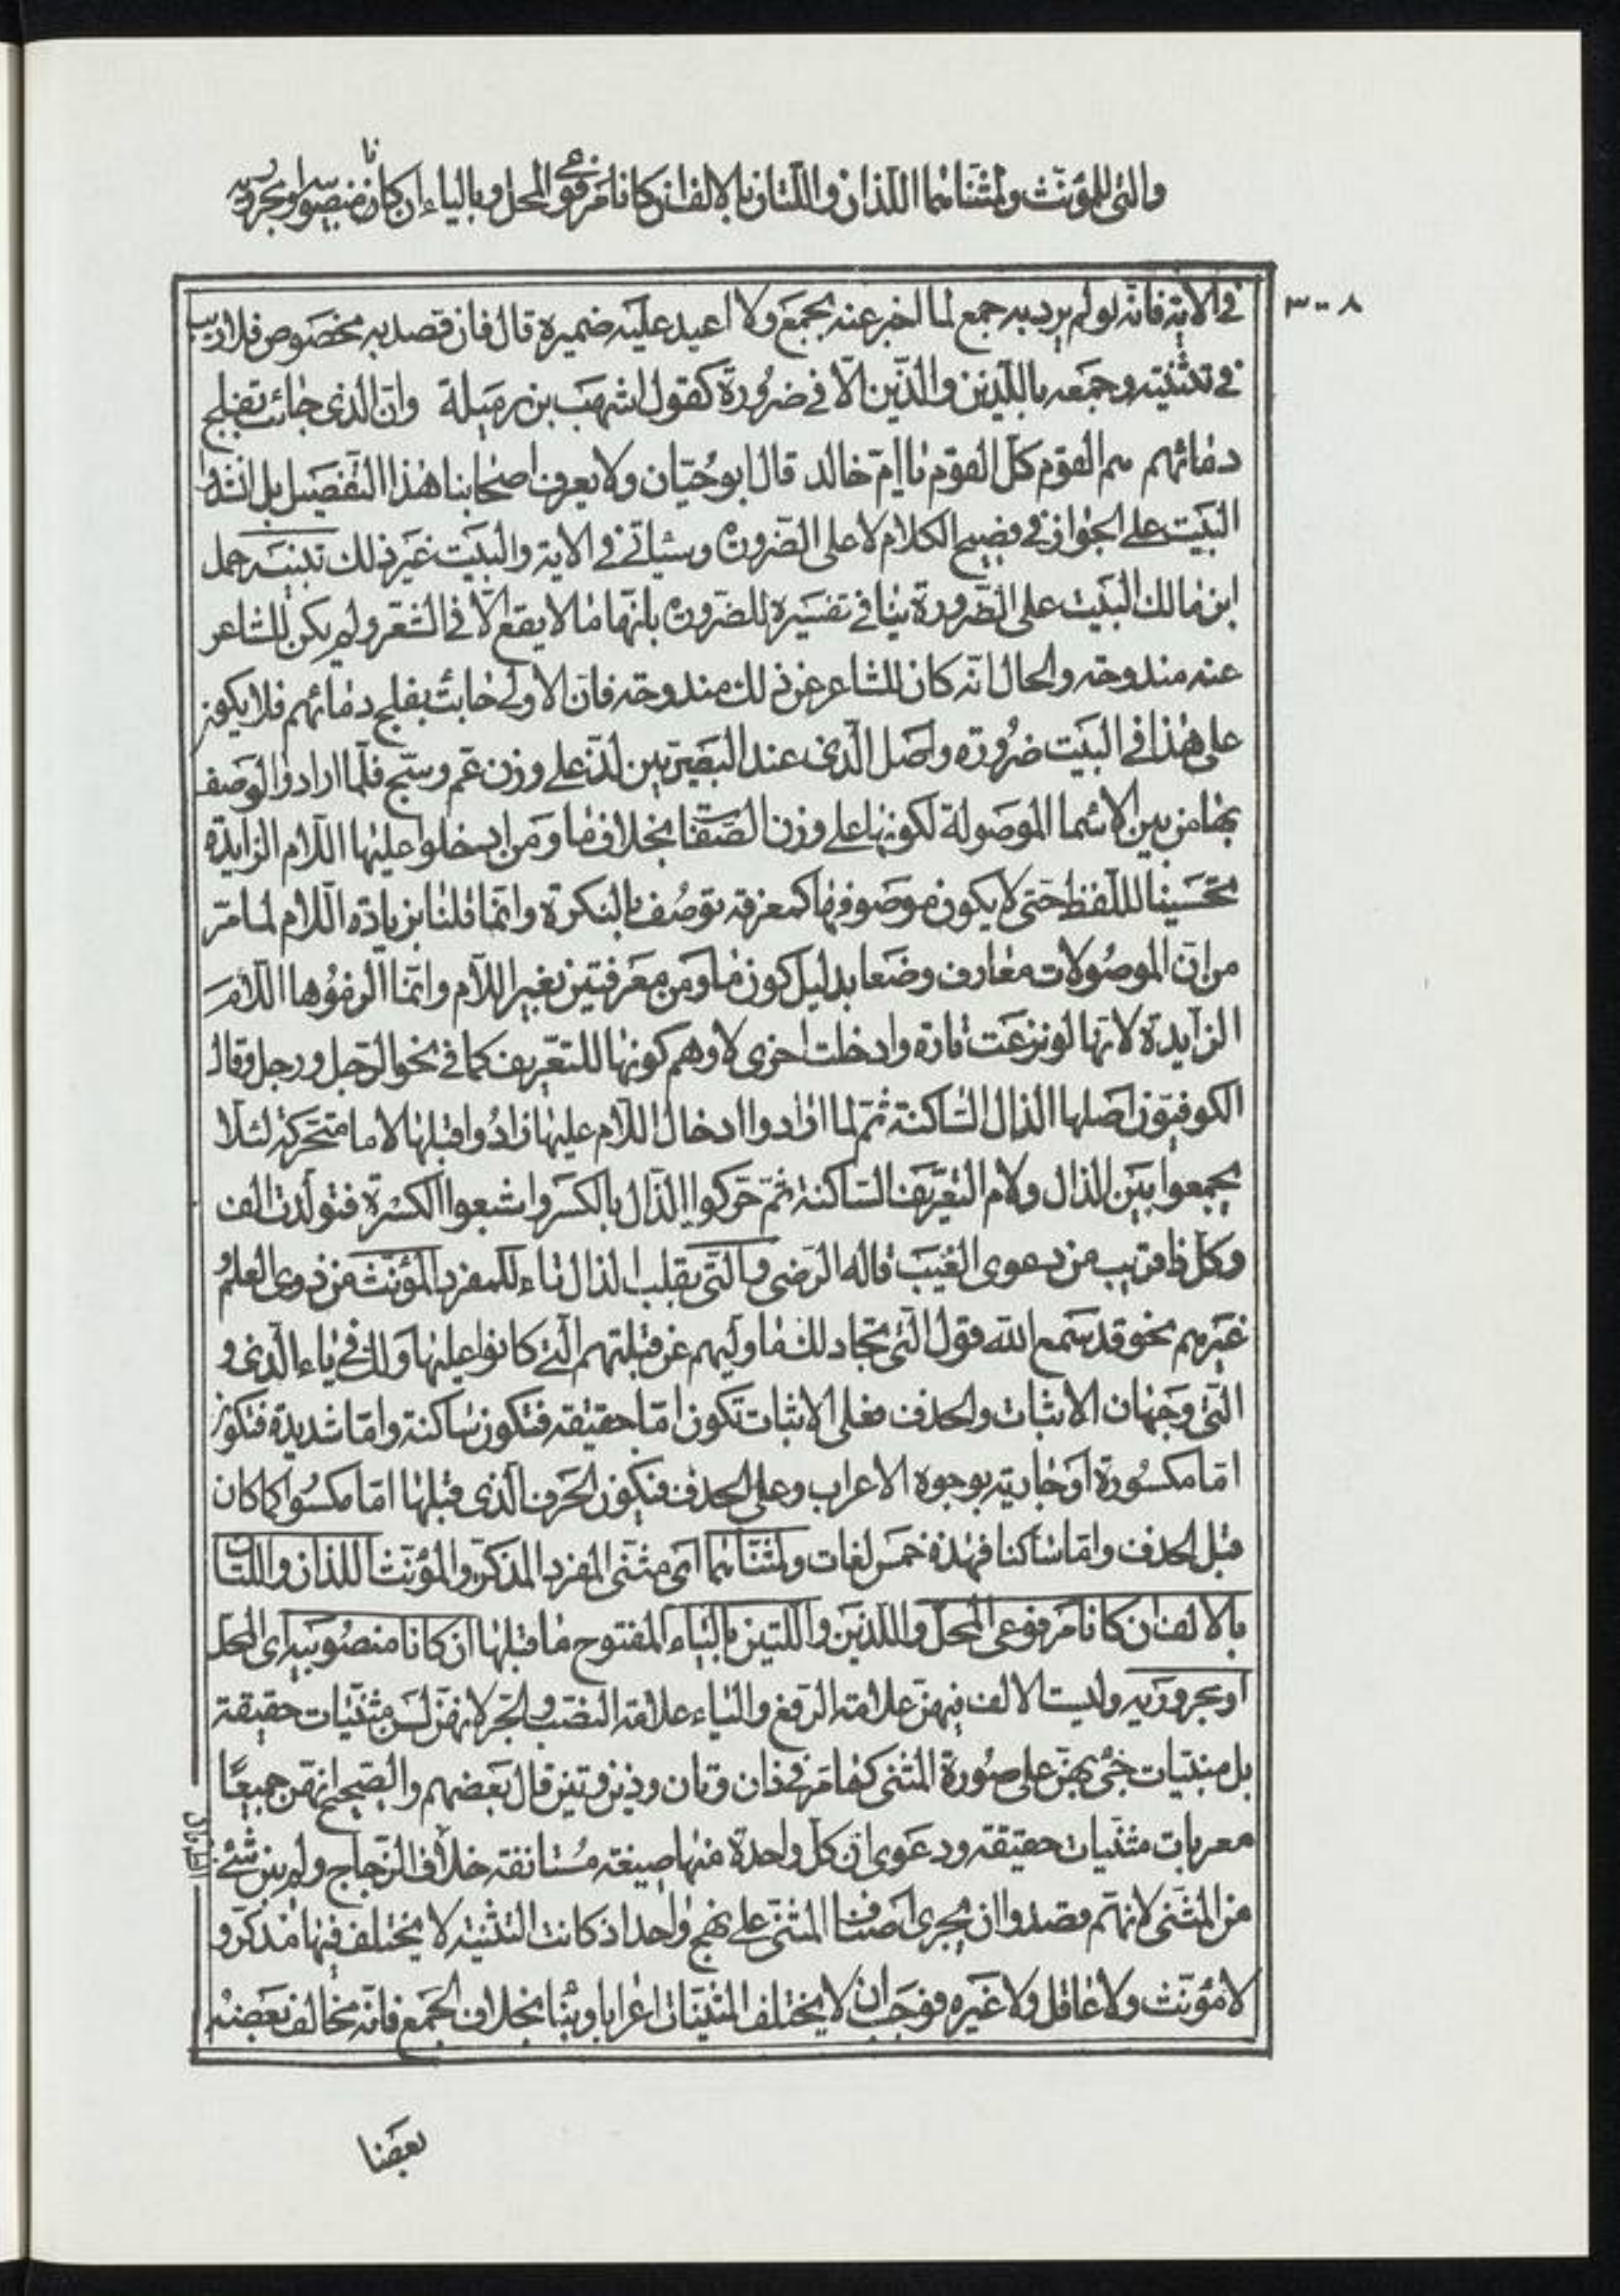 والتی للمؤنث ولمثناهما اللذان واللتان بالالف ان کانا مرفوعی المحل وبالیاء ان کانا منصوبیه او مجروریه
۳۰۰۸
فی الآیة فانه لو لم یرد به جمع لما اخبر عنه بجمع ولا اعید علیه ضمیره قال فان قصد به مخصوص فلا ریب
فی تثنیته وجمعه باللذین والذین الا فی ضرورة کقول اشهب بن رمیلة وان الذی حانت بفلج
دمائهم هم القوم کل القوم یا ام خالد قال ابو حیان ولا یعرف اصحابنا هذا التفصیل بل انشدوا
البیت علی الجواز فی فصیح الکلام لا علی الضرورة وسیاتی فی الایة والبیت غیر ذلک تنبیه حمل
ابن مالک البیت علی الضرورة ینافی تفسیره للضرورة بانها ما لا یقع الا فی الشعر ولم یکن للشاعر
عنه مندوحه والحال انه کان للشاعر عن ذلک مندوحه فان الاولی حانت بفلج دمائهم فلا یکون
علی هذا فی البیت ضرورة واصل الذی عند البصریین لذ علی وزن عم وشج فلما ارادوا الوصف
بها من بین الاسما الموصولة لکونها علی وزن الصفات بخلاف ما ومن ادخلوا علیها اللام الزایدة
تحسینا لللفظ حتی لا یکون موصوفها کمعرفه توصف بالنکرة وانما قلنا بزیادة اللام لما مر
من ان الموصولات معارف وضعا بدلیل کون ما ومن معرفتین بغیر اللام وانما الزموها اللام
الزایدة لانها لو نزعت تارة وادخلت اخری لاوهم کونها للتعریف کما فی نحو الرجل ورجل وقال
الکوفیون اصلها الذال الساکنة ثم لما ارادوا ادخال اللام علیها زادوا قبلها لاما متحرکة لئلا
یجمعوا بین الذال ولام التعریف الساکنة ثم حرکوا الذال بالکسر واشبعوا الکسرة فتولدت الف
وکل ذا قریب من دعوی الغیب قاله الرضی والتی بقلب الذال تاء للمفرد المؤنث من ذوی العلم و
غیرهم نحو قد سمع الله قول التی تجادلک ما ولیهم عن قبلتهم التی کانوا علیها ولک فی یاء الذی و
التی وجهان الاثبات والحذف فعلی الاثبات تکون اما خفیفه فتکون ساکنة واما شدیدة فتکون
اما مکسورة او جاریة بوجوه الاعراب وعلی الحذف فیکون الحرف الذی قبلها اما مکسورا کما کان
قبل الحذف واما ساکنا فهذه خمس لغات ولمثناهما ای مثنی المفرد المذکر والمؤنث اللذان واللتان
بالالف ان کانا مرفوعی المحل واللذین واللتین بالیاء المفتوح ما قبلها ان کانا منصوبیه ای المحل
او مجروریه ولیست الالف فیهن علامة الرفع والیاء علامة النصب والجر لانهن لسن مثنیات حقیقة
بل مبنیات جیء بهن علی صورة المثنی کما مر فی ذان وتان وذین وتین قال بعضهم والصحیح انهن جمیعا
معربات مثنیات حقیقه ودعوی ان کل واحدة منها صیغه مستانفه خلاف الزجاج ولم یبن شئ
من المثنی لانهم قصدوا ان یجری اصناف المثنی علی نهج واحد اذ کانت التثنیه لا یختلف فیها مذکر و
لا مؤنث ولا عاقل ولا غیره فوجب ان لا یختلف المثنیات اعرابا وبنا بخلاف الجمع فانه یخالف بعضه
بعضا